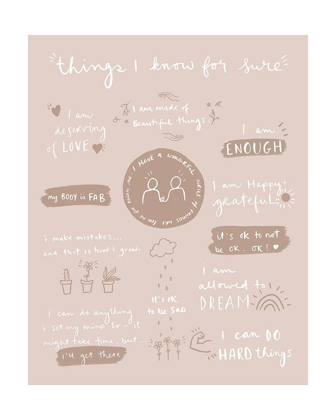 "things I know for sure"
I am
deserving
of LOVE
I am made of
Beautiful things
I am
ENOUGH
I HAVE A WONDERFUL
my BODY is FAB
I am Happy,
grateful
it's ok to not
be ok. ok!
i make mistakes...
and that is how i grow.
I am
allowed to
DREAM
it's OK
to be SAD
I can do anything
i set my mind to - it
might take time, but...
i'll get there
I can DO
HARD things